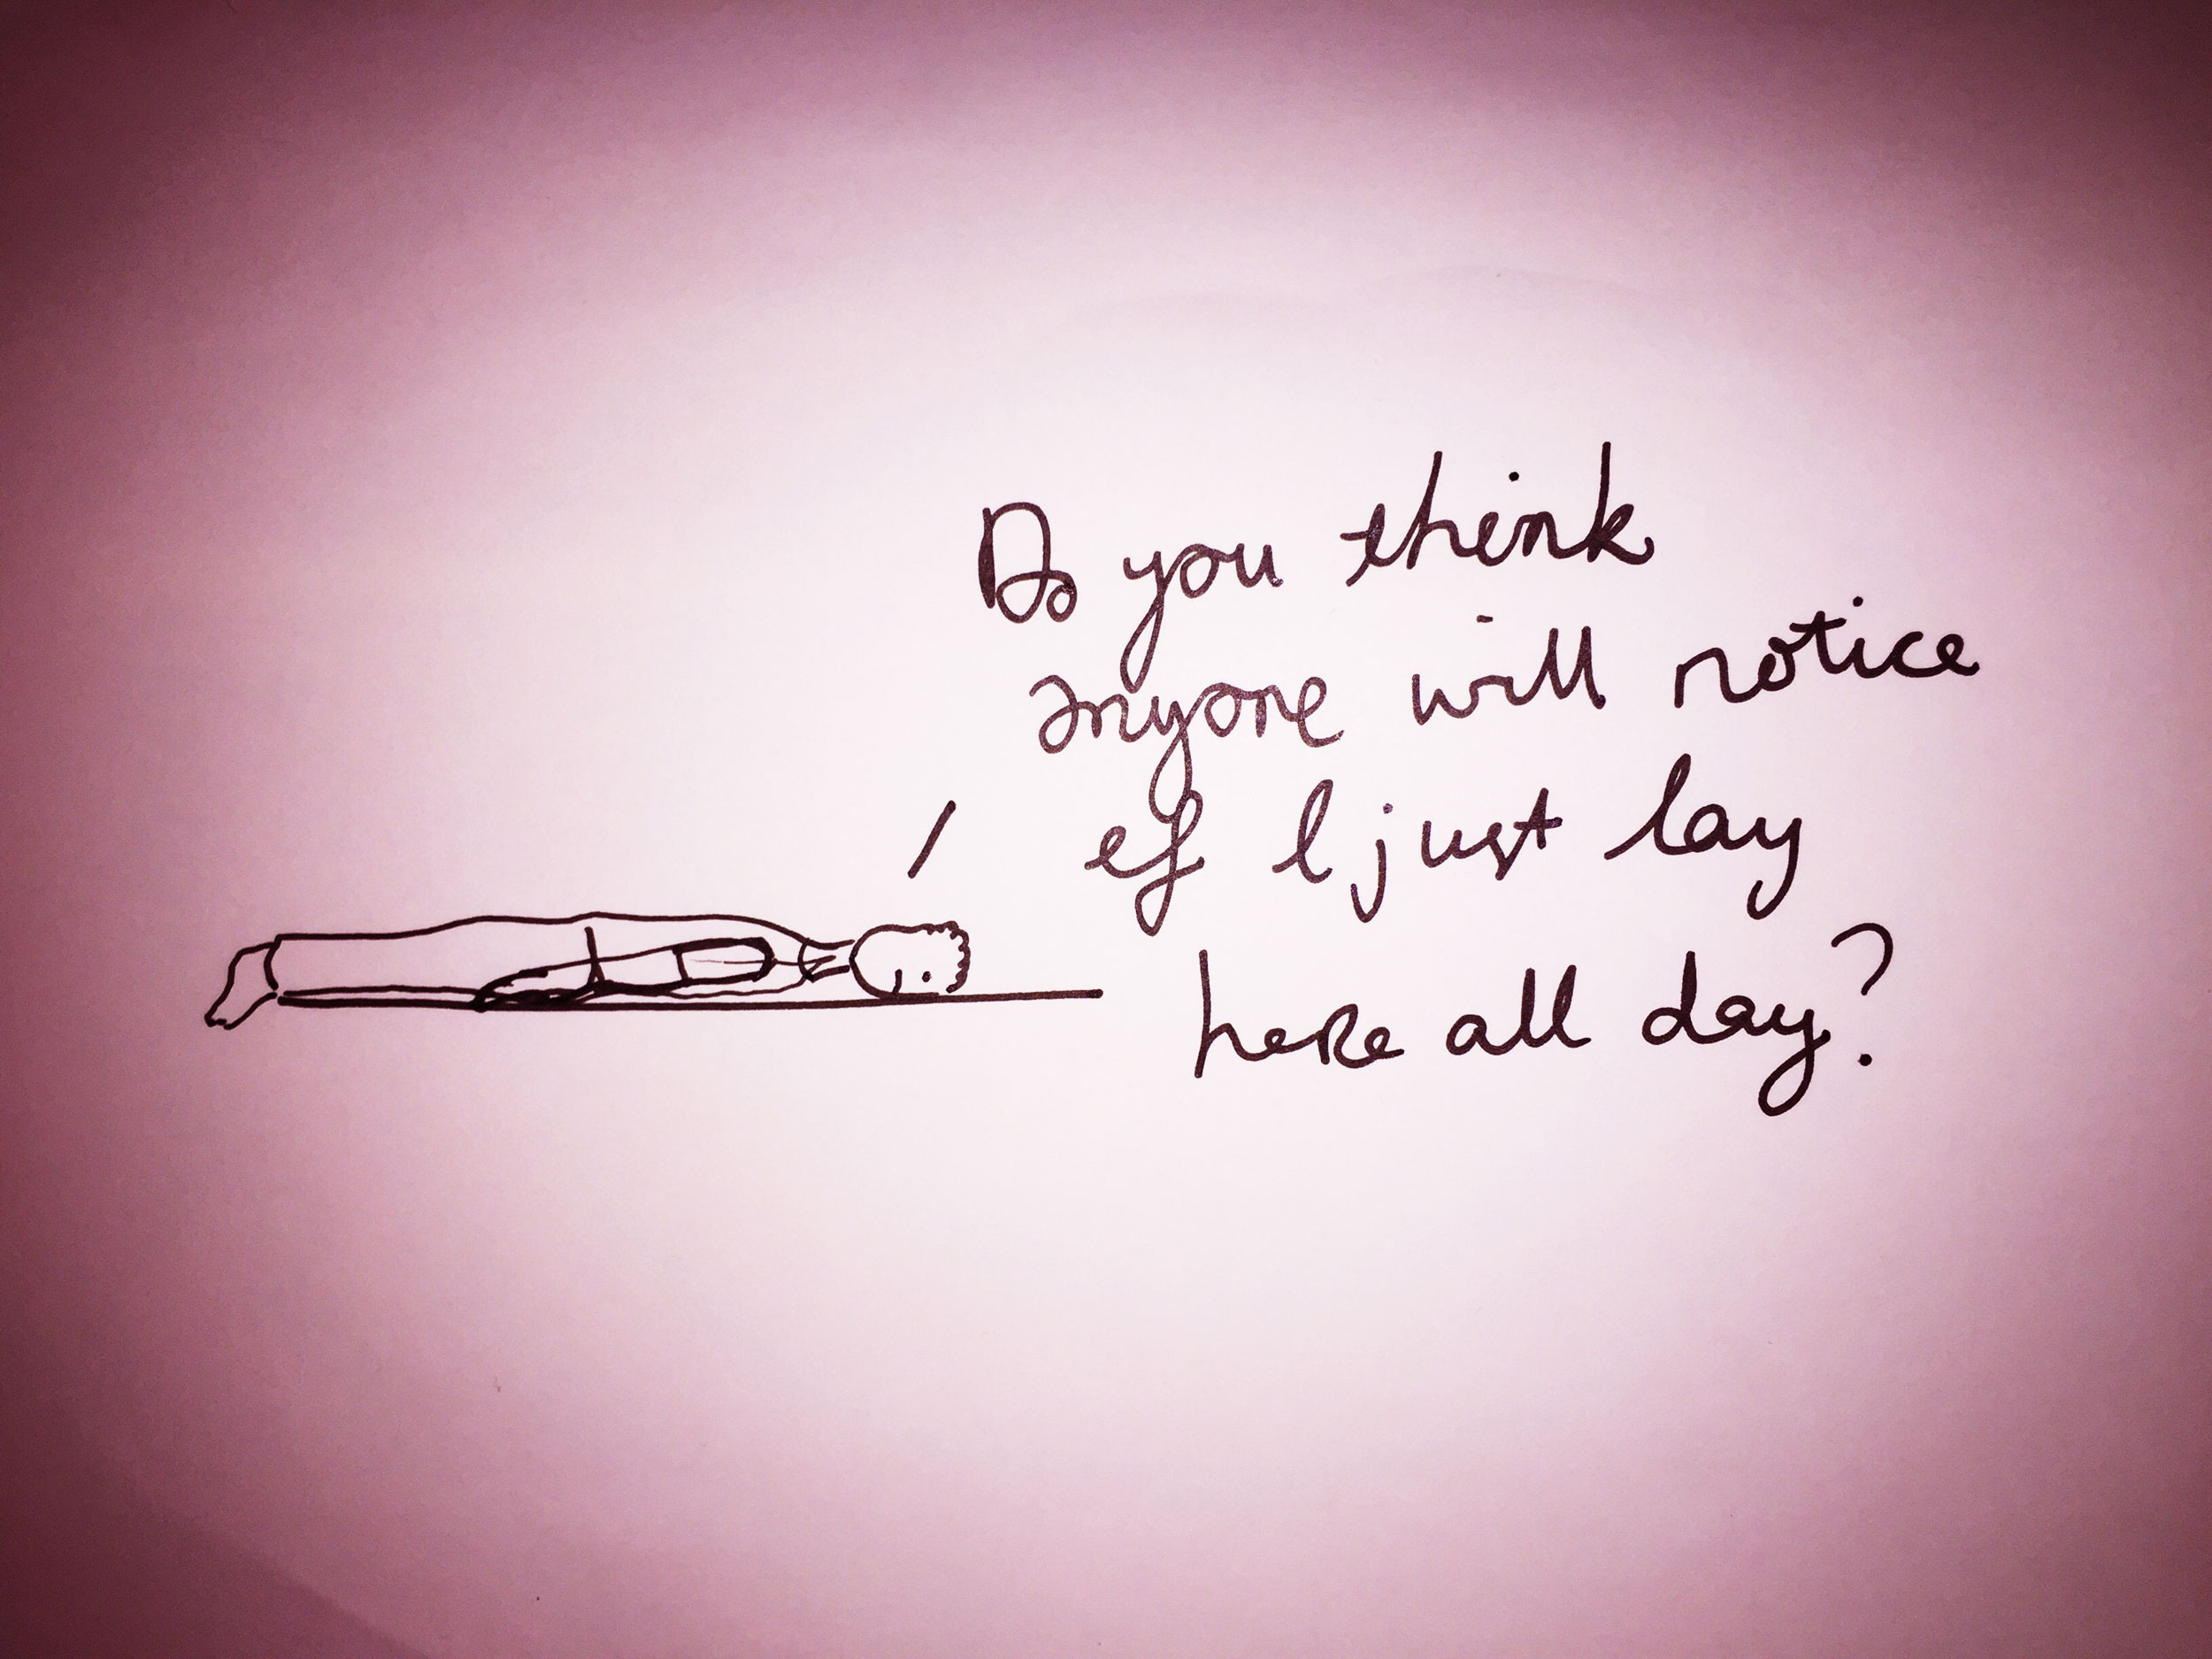 Do you think
anyone will notice
if I just lay
here all day?